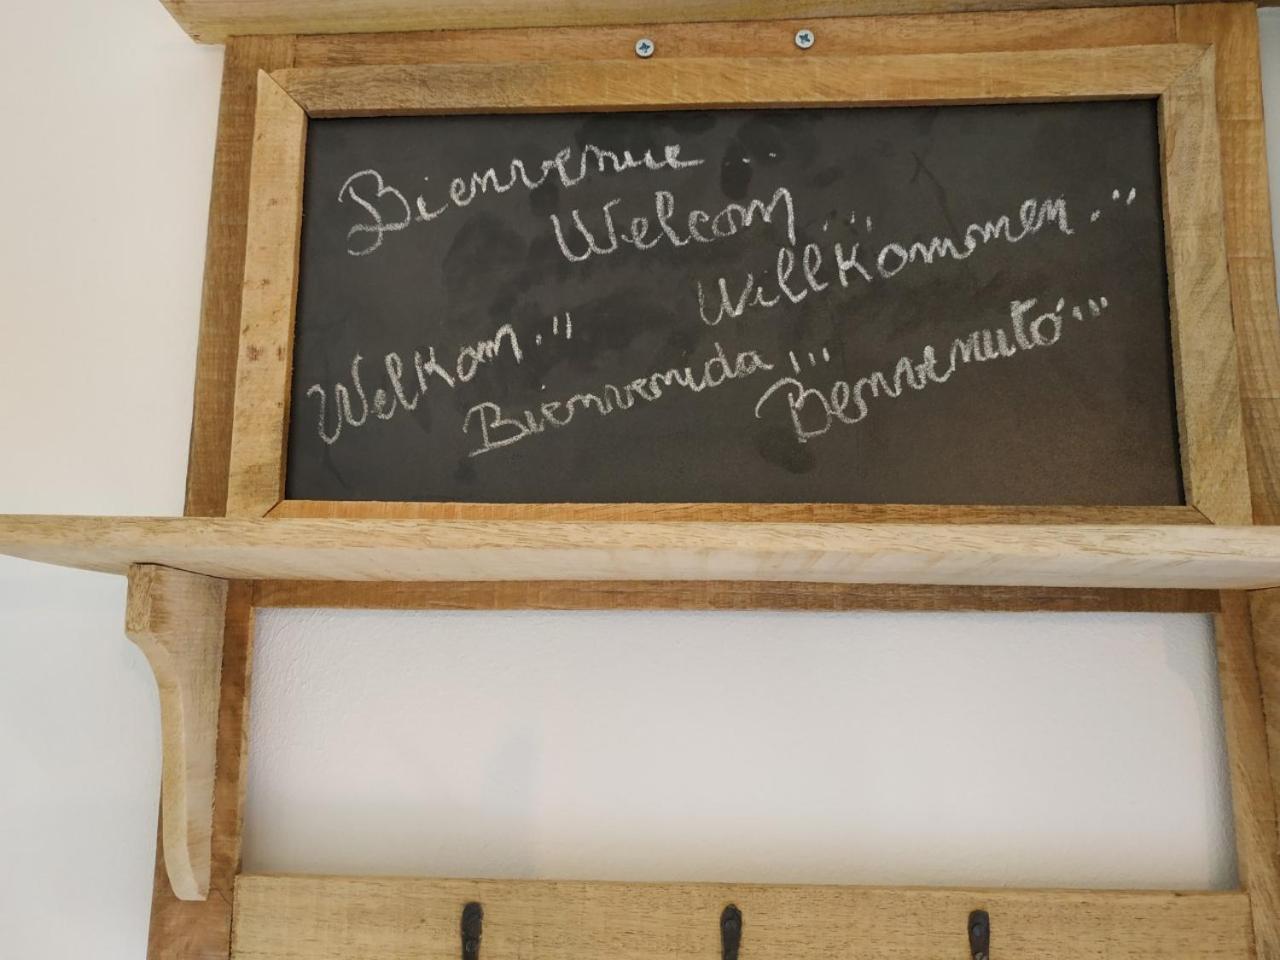 Bienvenue...
Welcom...
Willkommen...
Welkom...
Bienvenida...
Benvenuto...